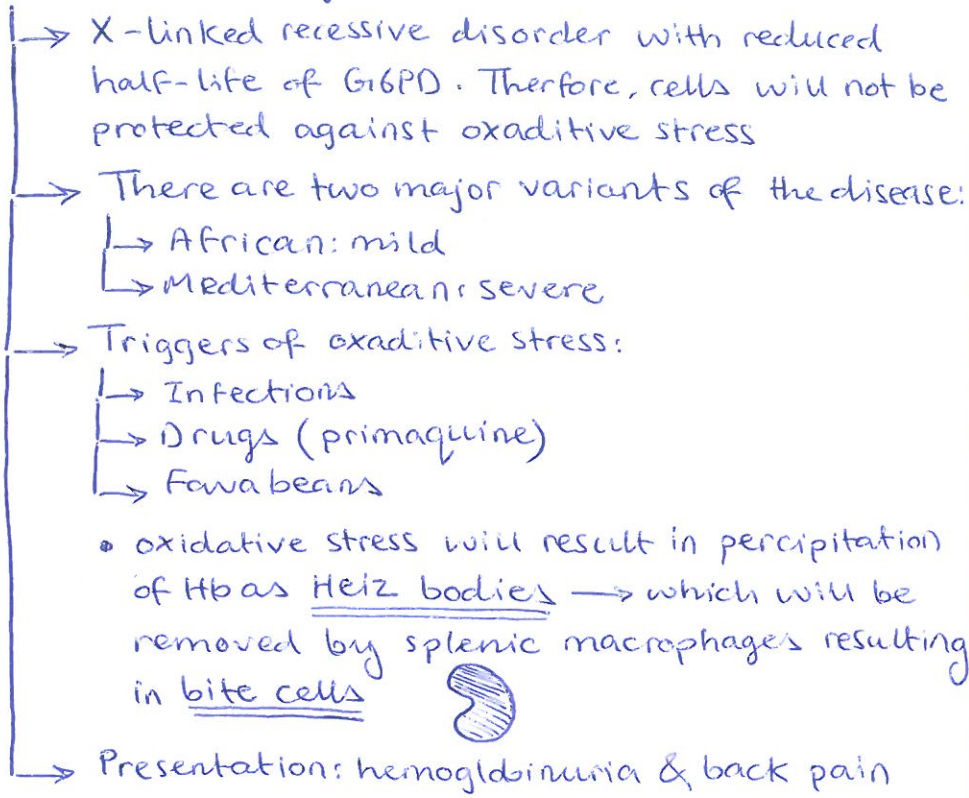 X-linked recessive disorder with reduced
half-life of G6PD. Therfore, cells will not be
protected against oxaditive stress
There are two major variants of the disease:
African: mild
Mediterranean: severe
Triggers of oxaditive stress:
Infections
Drugs (primaquine)
Fava beans
• oxidative stress will result in percipitation
of Hb as Heiz bodies → which will be
removed by splenic macrophages resulting
in bite cells
Presentation: hemoglobinuria & back pain